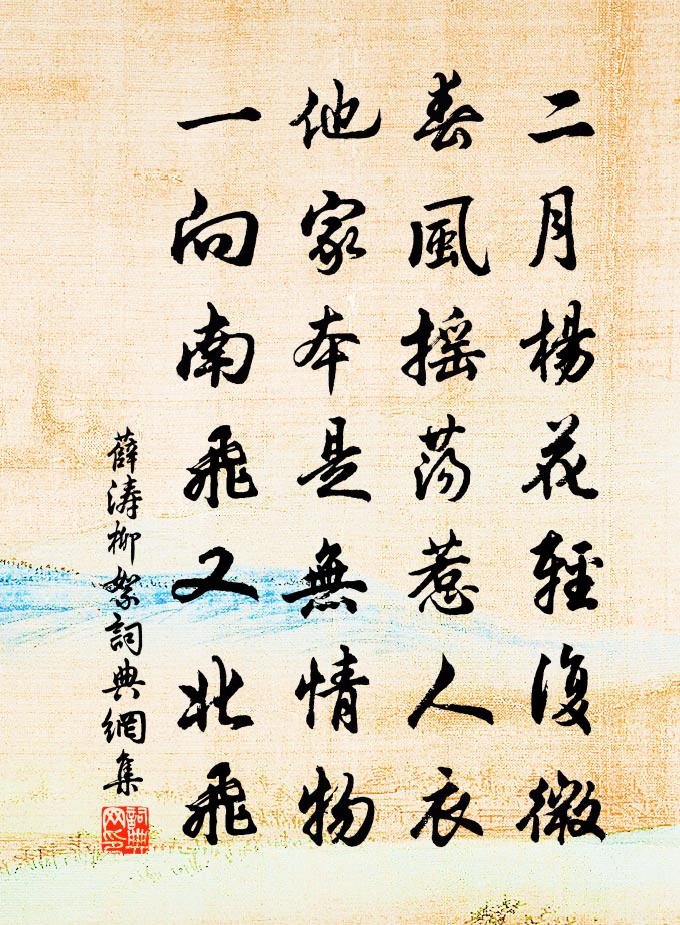 二月楊花輕復微
春風摇蕩惹人衣
他家本是無情物
一向南飛又北飛
薛涛柳絮詞典網集
詞典网印